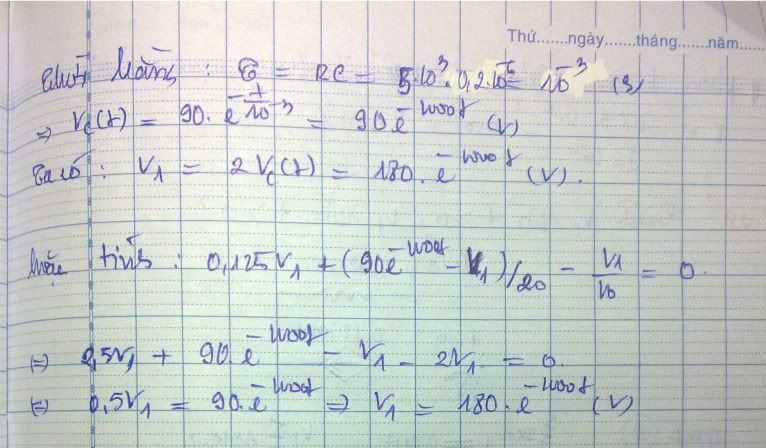 Thứ.......ngày.......tháng.......năm.......
: τ = RC = 5.10³.0,2.10⁻⁶ = 10⁻³ (s)
⇒ V_C(t) = 90.e^(-t/10⁻³) = 90e^(-1000t) (V)
Ta có : V₁ = 2V_C(t) = 180.e^(-1000t) (V).
tính : 0,125V₁ + (90e^(-1000t) - V₁)/20 - V₁/10 = 0.
⇔ 2,5V₁ + 90.e^(-1000t) - V₁ - 2V₁ = 0.
⇔ 0,5V₁ = 90.e^(-1000t) ⇒ V₁ = 180.e^(-1000t) (V)